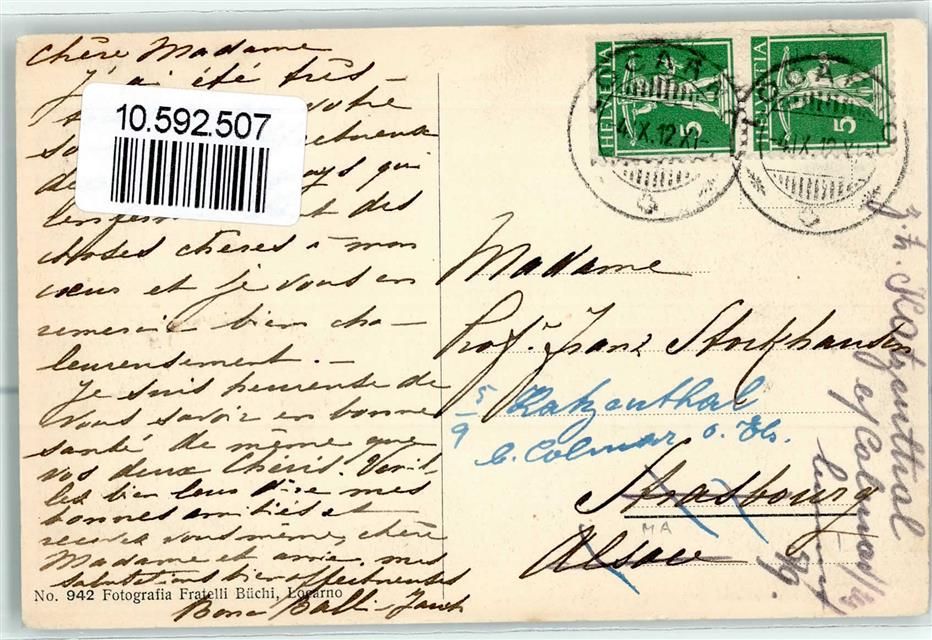 Chère Madame
J'ai été très
votre
pays qui
et des
choses chères à mon
cœur et je vous en
remercie bien cha-
leureusement. —
Je suis heureuse de
vous savoir en bonne
santé de même que
vos deux Chéris. Veuil-
lez bien leur dire mes
bonnes amitiés et
recevez vous même, chère
Madame et amie mes
salutations bien affectueuses
10.592.507
No. 942 Fotografia Fratelli Büchi, Locarno
HELVETIA 5
HELVETIA 5
LOCARNO
4.IX.12.XI-
LOCARNO
4.IX.12.X
Madame
Prof. Franz Stockhausen
5/9 Katzenthal
b. Colmar o. Els.
Strasbourg
MA
Alsace
z. Z. Katzenthal
b/Colmar
5/9.